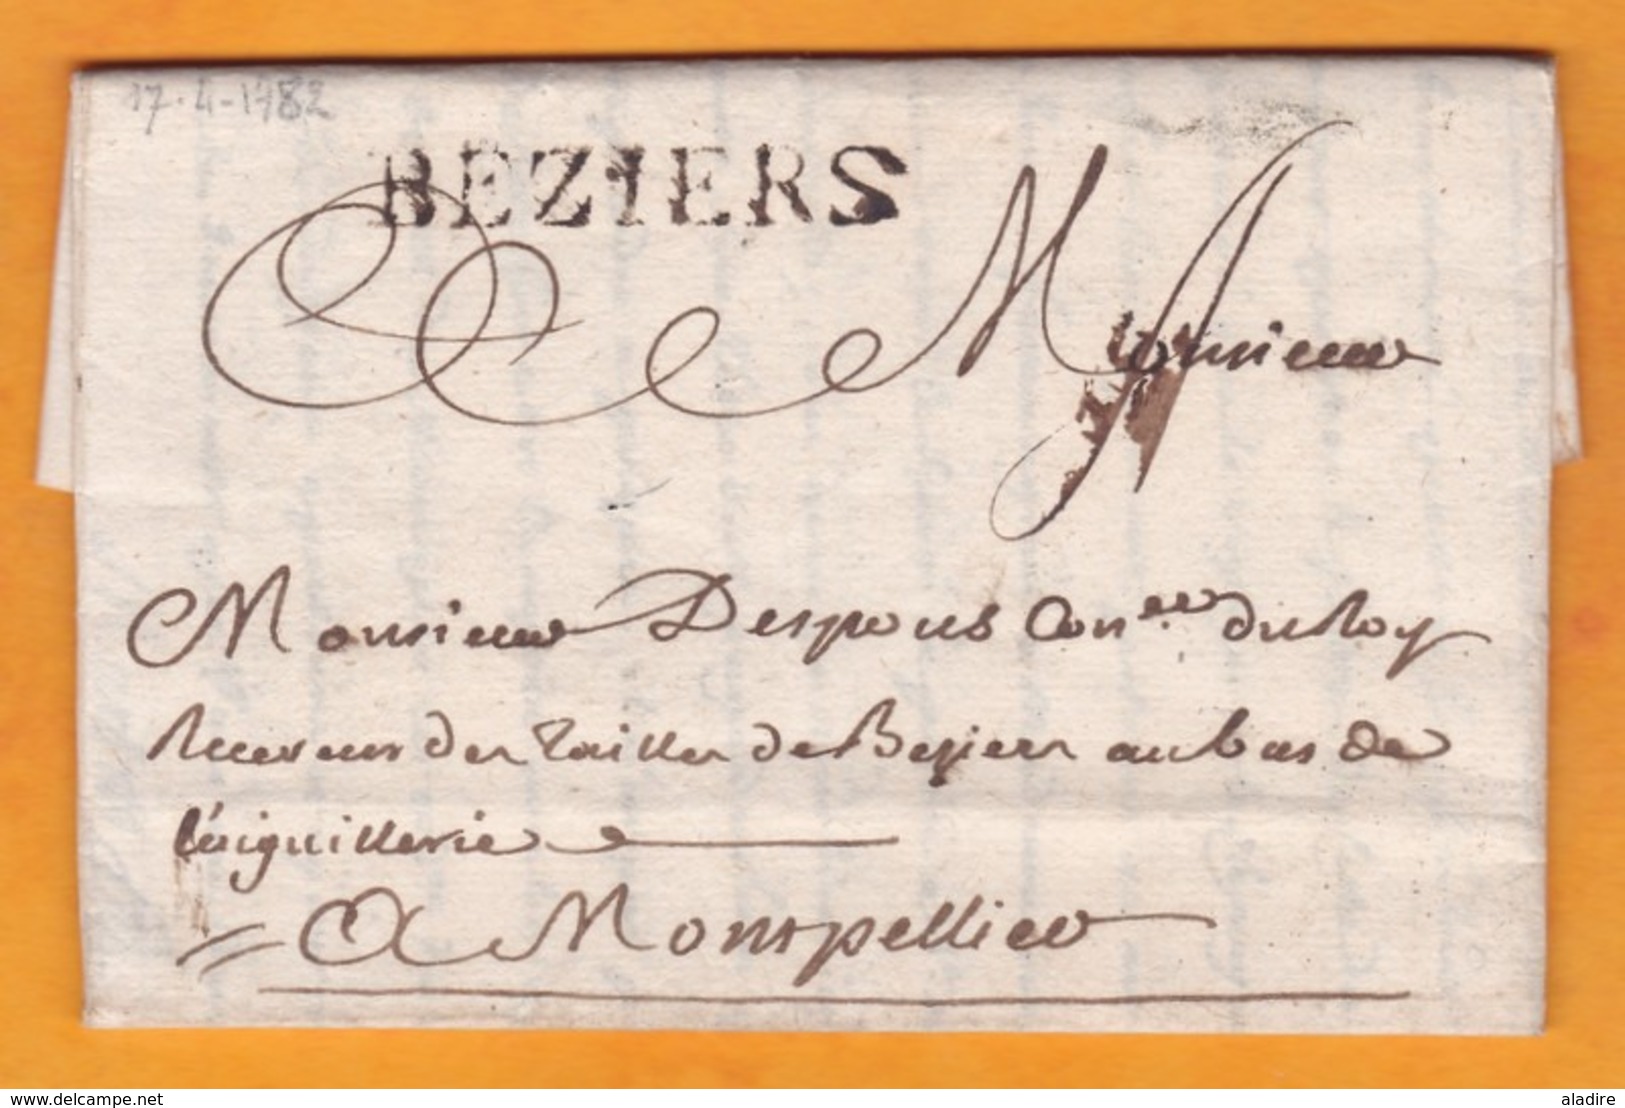 17-4-1782
BEZIERS
Monsieur
Monsieur Despous Con.er du Roy
Receveur des tailles de Beziers au bas de
l'aiguillerie
A Montpellier
www.delcampe.net
aladire